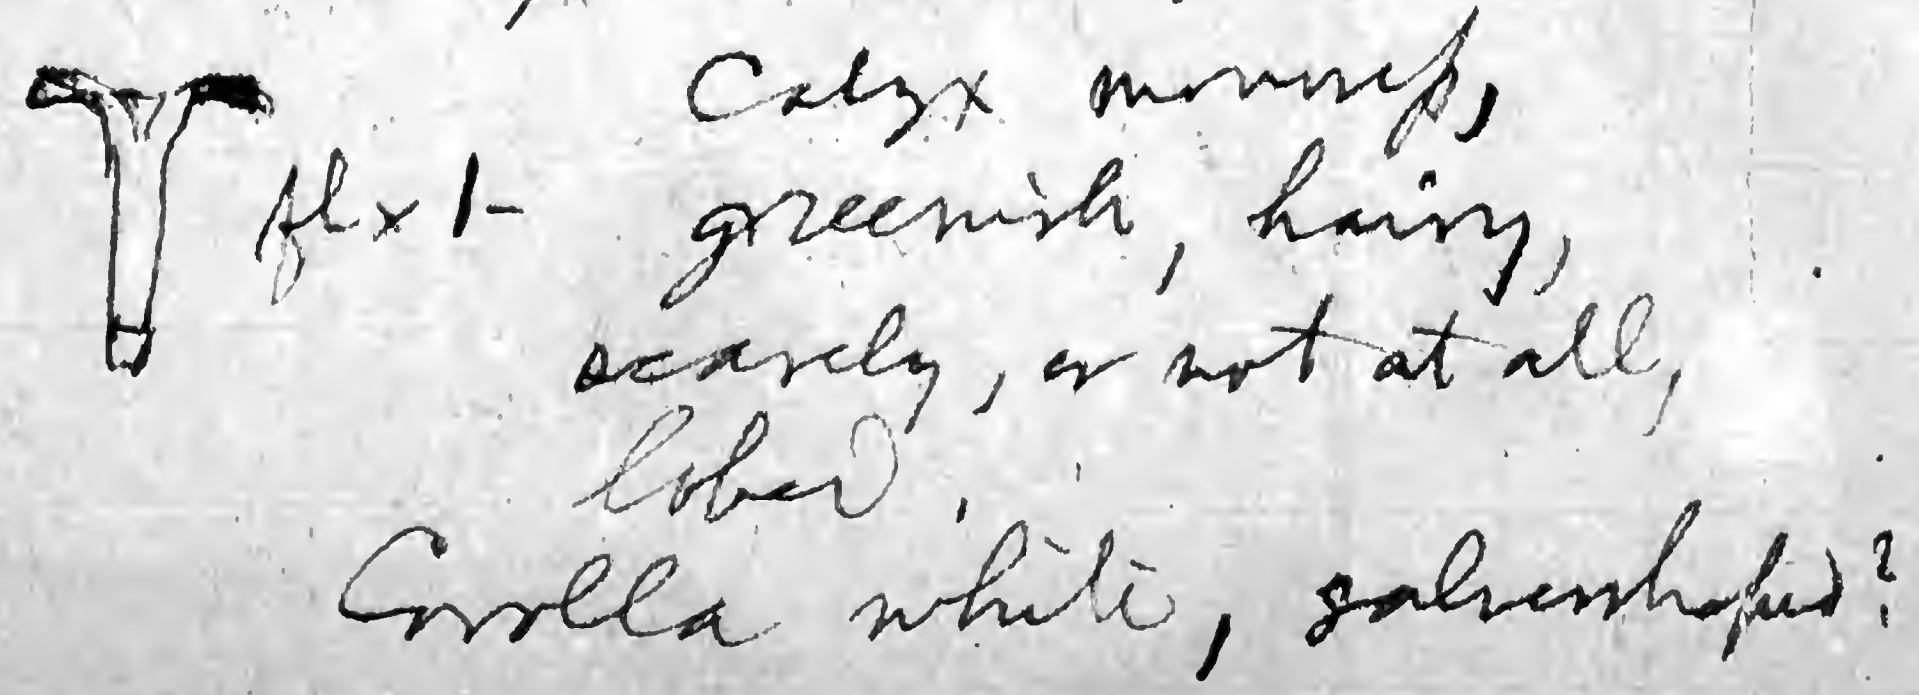 Calyx monosep,
fl x 1- greenish, hairy,
scarcely, or not at all,
lobed.
Corolla white, salvershaped?